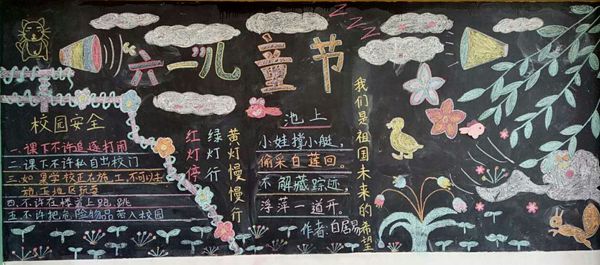 “六一”儿童节
ZZZ
校园安全
一.课下不许追逐打闹
二.课下不许私自出校门
三.如更学校正在施工,不可以去
施工地区玩耍
四.不许在楼道上跑、跳
五.不许把危险物品带入校园
红灯停
绿灯行
黄灯慢慢行
池上
小娃撑小艇,
偷采白莲回。
不解藏踪迹,
浮萍一道开。
作者:白居易
我们是祖国未来的希望